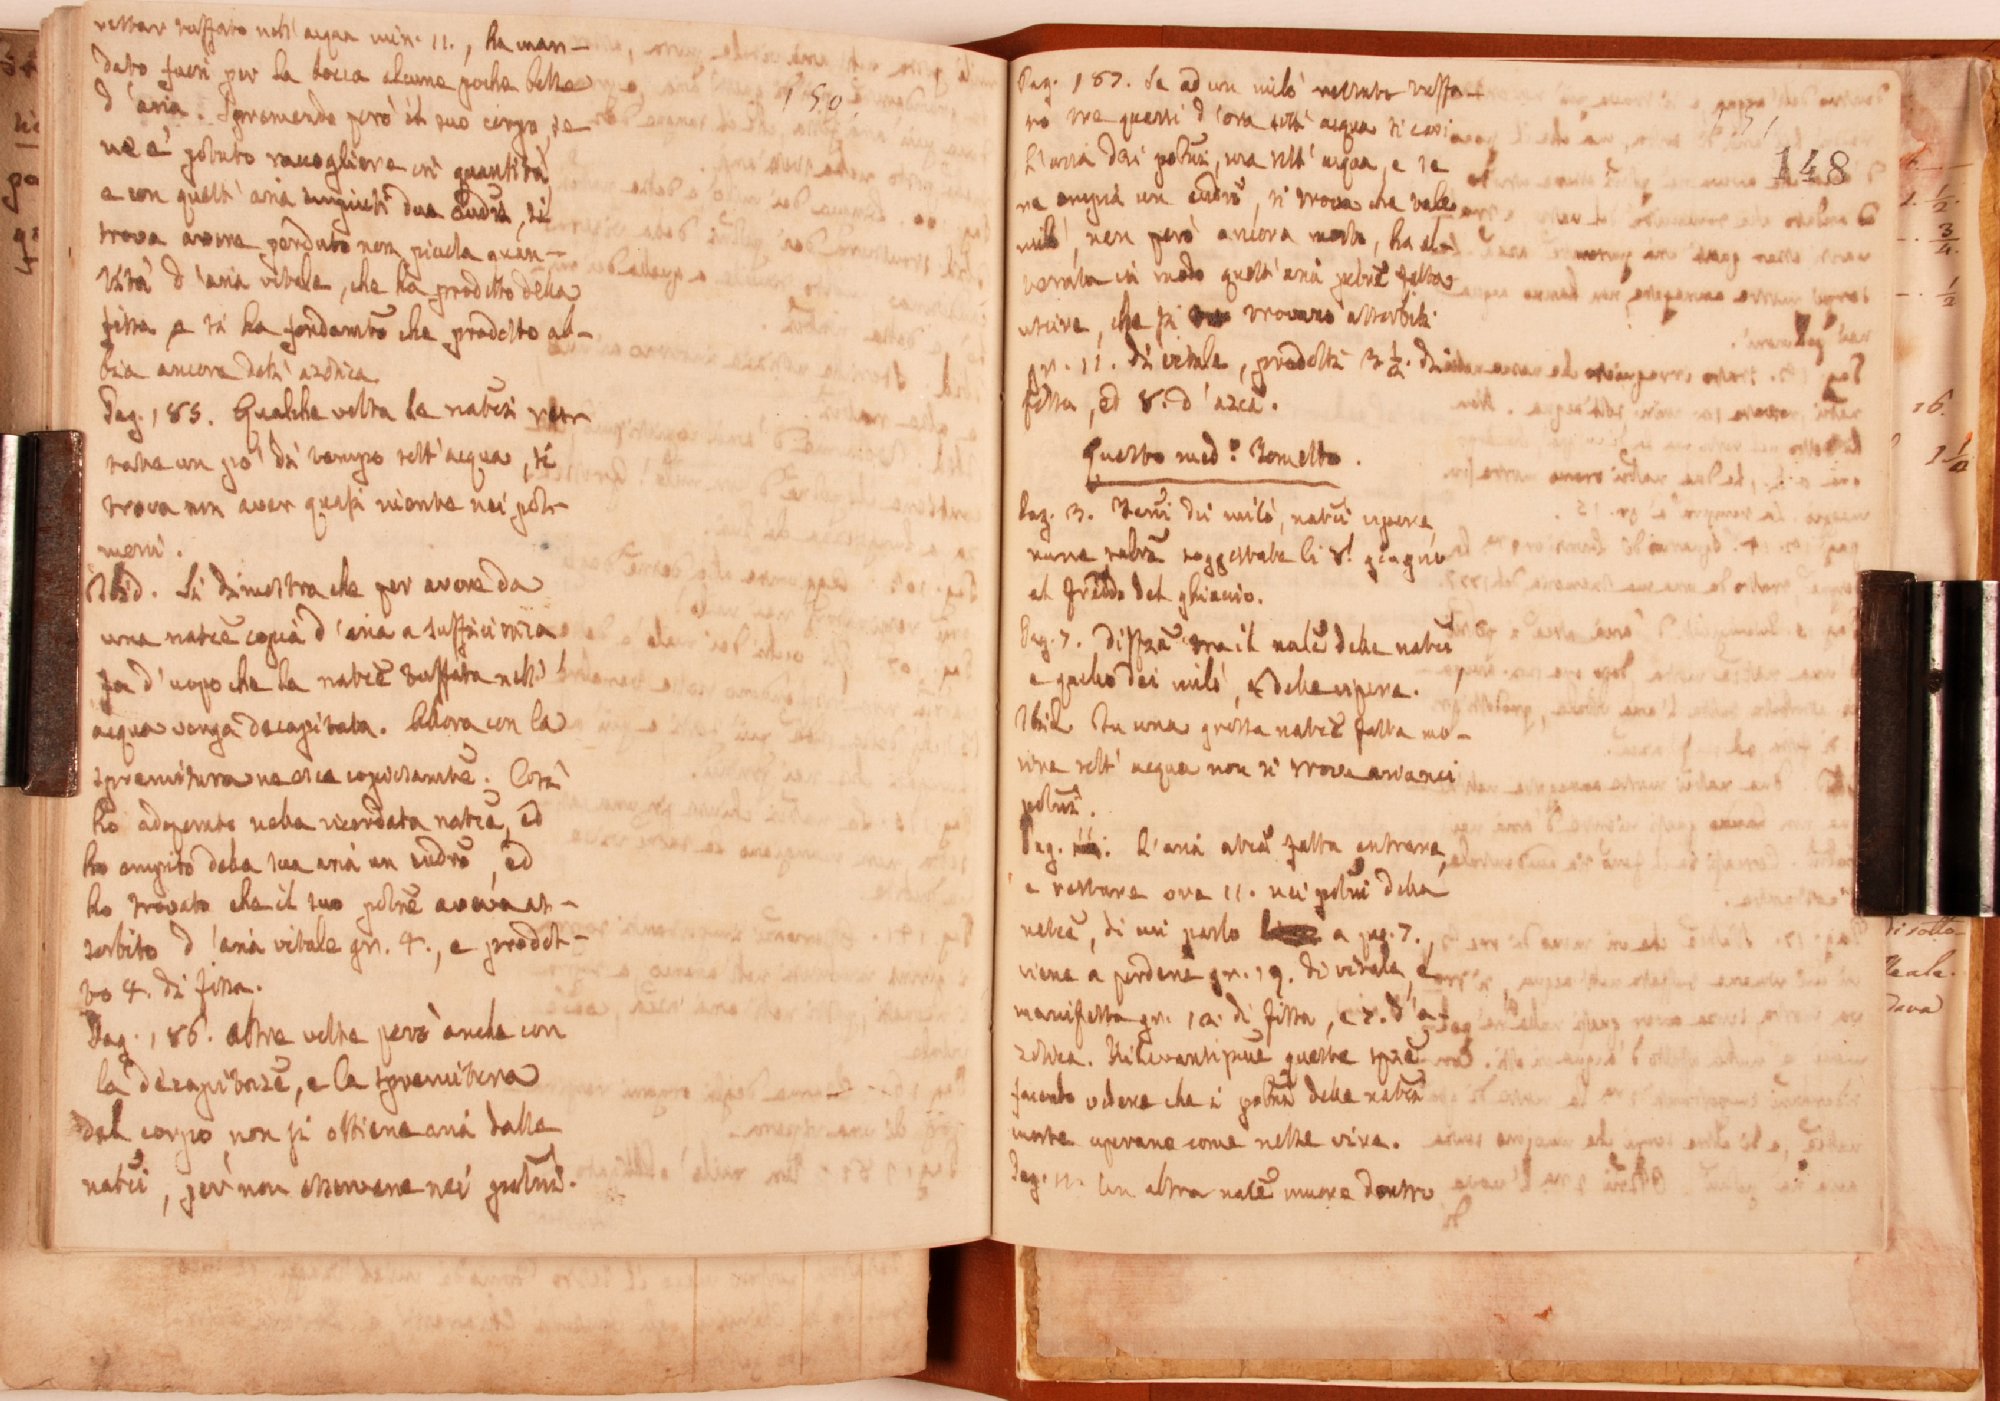 restar tuffato nell' acqua min. 11., ha man-
dato fuori per la bocca alcune poche bolle
d' aria. Spremendo però il suo corpo, se
150
ne è potuto raccogliere in quantità,
e con quell' aria empiuti due cudri, si
trova avere perduto non picciola quan-
tità d' aria vitale, che ha prodotto della
fissa e si ha fondamto che prodotto ab-
bia ancora dell' azotica
Pag. 185. Qualche volta le natrici res-
tate un po' di tempo sott' acqua, si
trova non aver quasi niente nei pol-
moni.
Ibid. Si dimostra che per avere da
una natrice copia d' aria a sufficienza
fa d' uopo che la natrice tuffata nell'
acqua venga decapitata. Allora con la
spremitura ne esce copiosamte. Così
ho adoperato nella ricordata natrice, ed
ho empito della sua aria un cudro, ed
ho trovato che il suo polne aveva as-
sorbito d' aria vitale gr. 4., e prodot-
to 4. di fissa.
Pag. 186. altre volte però anche con
la decapitaze, e la spremitura
del corpo, non si ottiene aria dalle
natrici, per non esservene nei polmi.
Pag. 187. Se ad un milò restato tuffa-
to tre quarti d' ora sott' acqua si cavi
151
l' aria dai polmi, ma sott' acqua, e se
148
ne empia un cudro, si trova che tale
milò, non però ancora morto, ha al-
terata in modo quell' aria polmre fatta
uscire, che si trovano assorbiti
gr. 11. di vitale, prodotti 3 1/2. di
fissa, ed 8. d' azca.
Questo med.o Tometto.
Pag. 3. Fenni dei milò, natrici vipere,
rane, salamre soggettate li 8. giugno
al freddo del ghiaccio.
Pag. 7. Diffza tra il nale delle natrici
e quello dei milò, e delle vipere.
Ibid. In una grossa natrice fatta mo-
rire sott' acqua non si trova aria nei
polmi.
Pag. 11. L' aria atmca fatta entrare,
e restare ore 11. nei polmi della
natrice, di cui parlo a pag. 7.,
viene a perdere gr. 19. di vitale, e
manifesta gr. 12. di fissa, e 7. d' a-
zotica. Rilevantissime queste spze
facendo vedere che i polmi delle natrici
morte operano come nelle vive.
Pag. 11. Un altra natce muore dentro